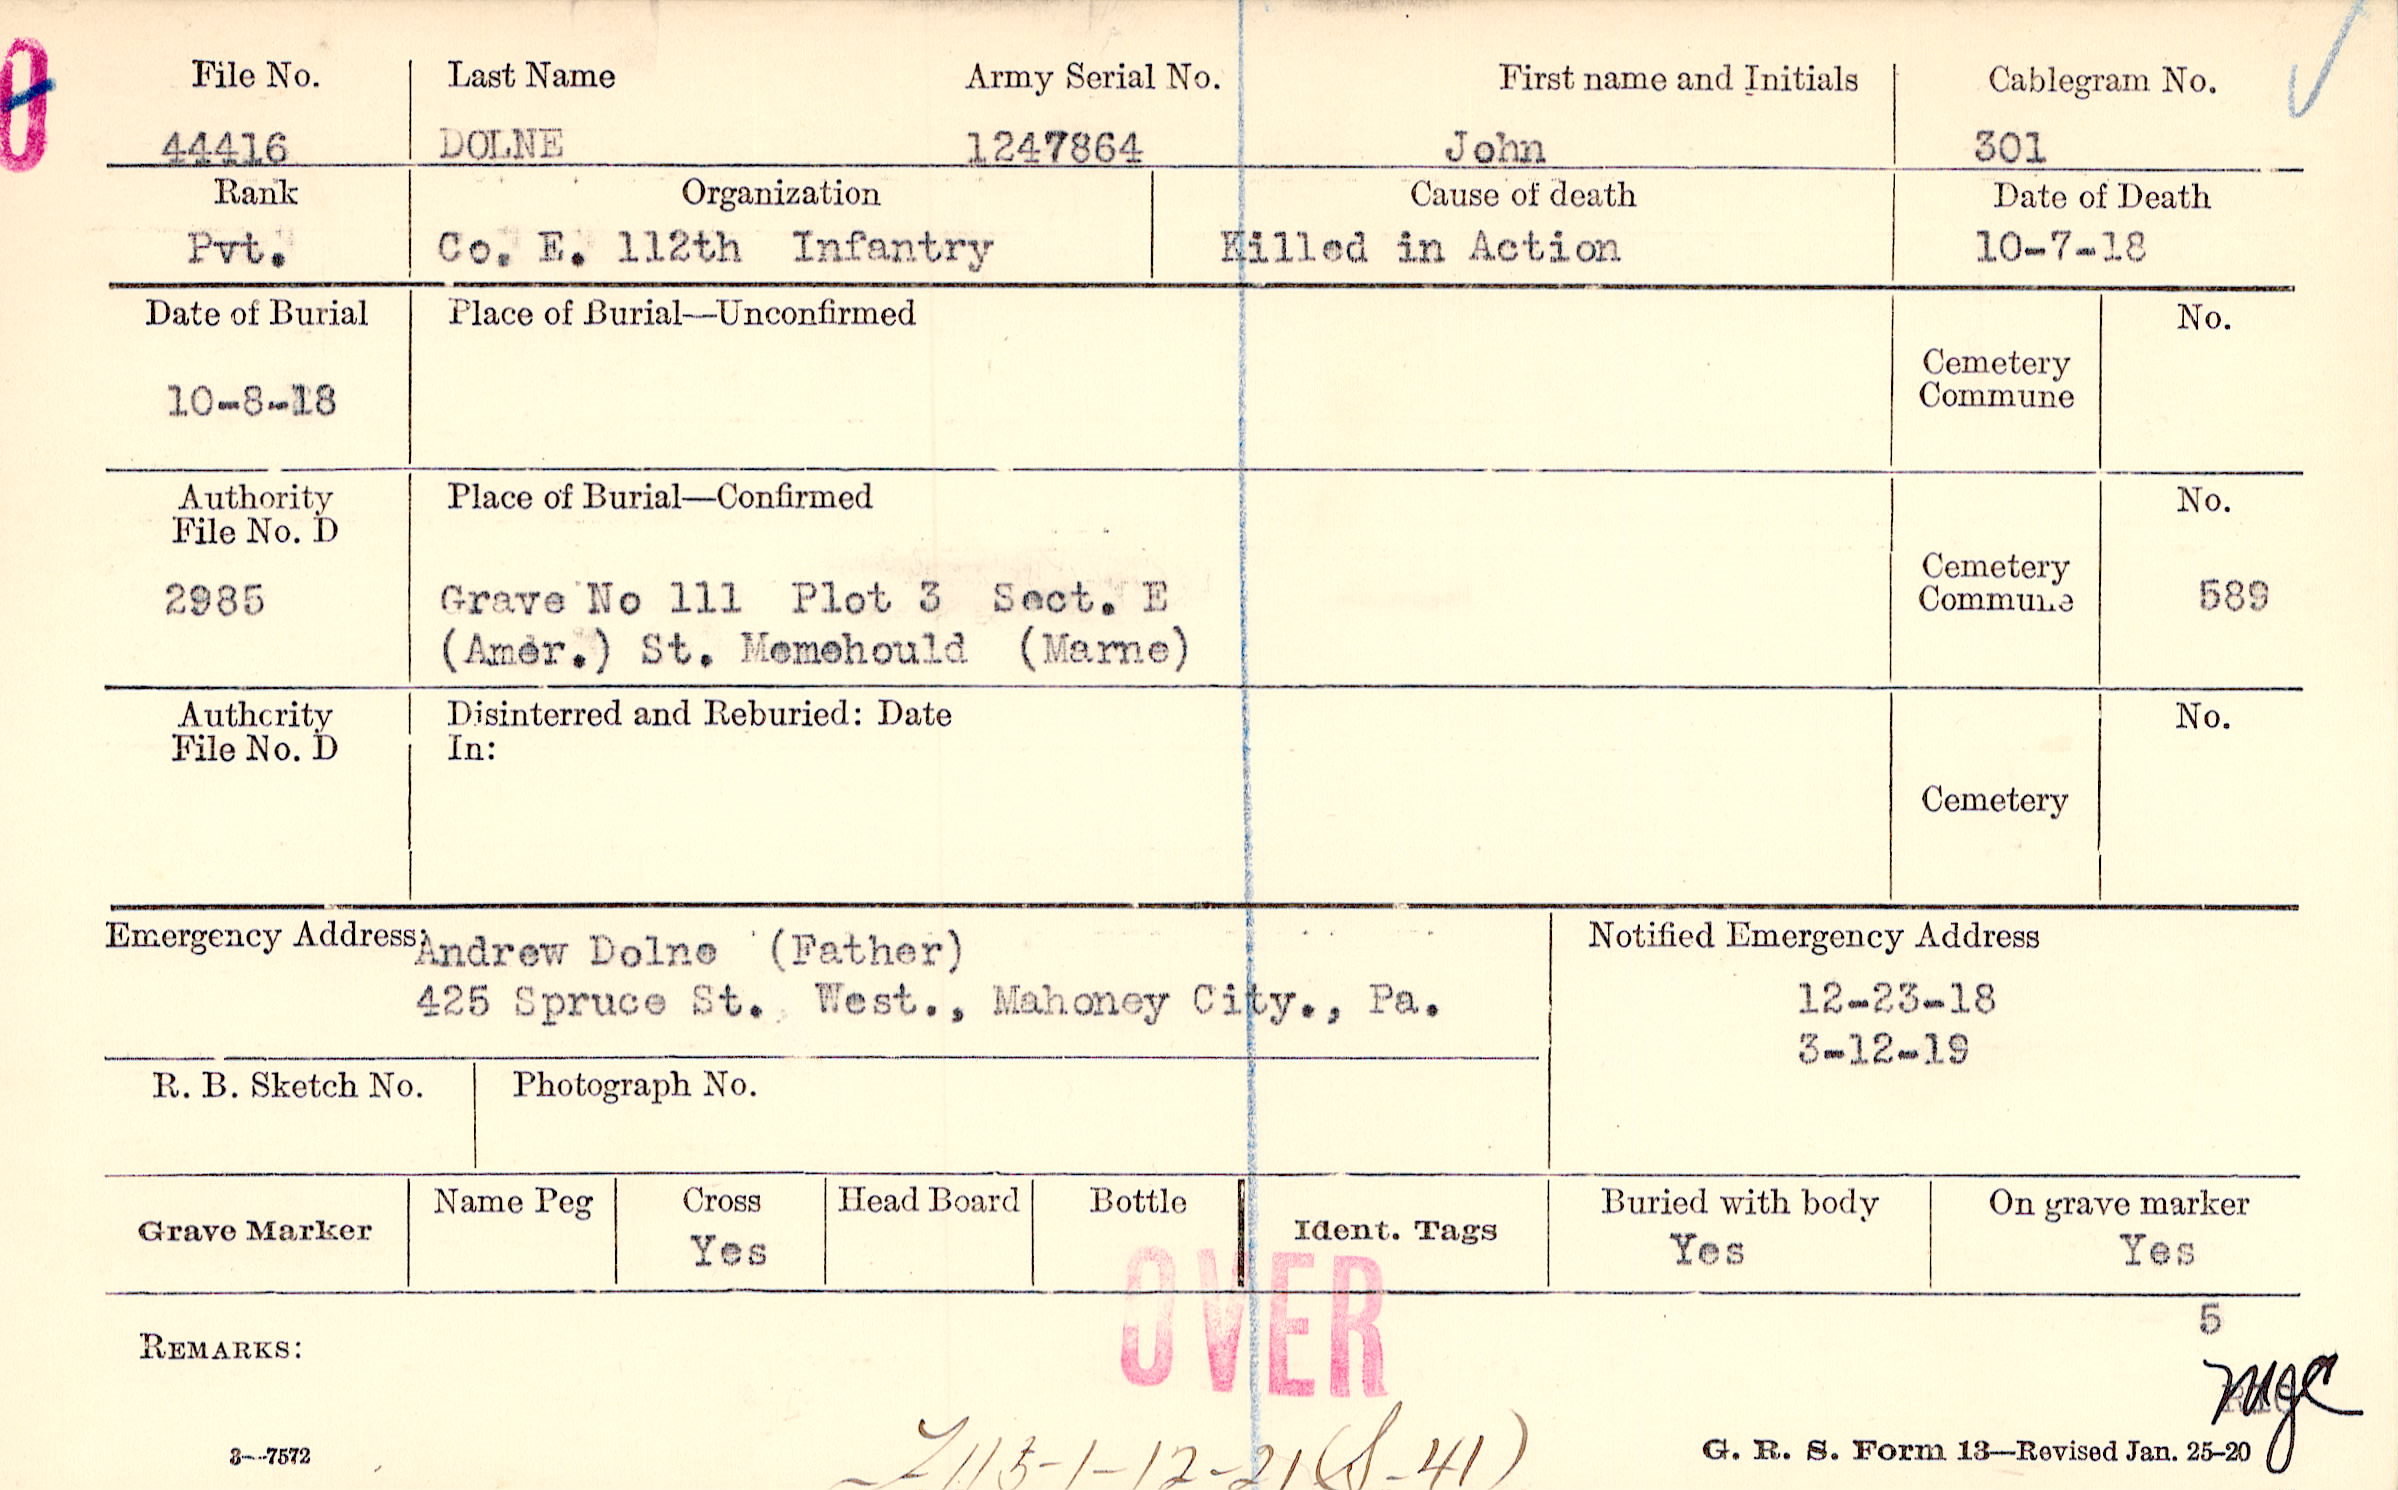 File No. Last Name Army Serial No. First name and Initials Cablegram No.
44416 DOLNE 1247864 John 301
Rank Organization Cause of death Date of Death
Pvt. Co. E. 112th Infantry Killed in Action 10-7-18
Date of Burial Place of Burial—Unconfirmed No.
Cemetery
Commune
10-8-18
Authority Place of Burial—Confirmed No.
File No. D
Cemetery
Commune
2985 Grave No 111 Plot 3 Sect. E 589
(Amer.) St. Memehould (Marne)
Authority Disinterred and Reburied: Date No.
File No. D In:
Cemetery
Emergency Address: Andrew Dolne (Father) Notified Emergency Address
425 Spruce St. West., Mahoney City., Pa. 12-23-18
3-12-19
R. B. Sketch No. Photograph No.
Name Peg Cross Head Board Bottle Buried with body On grave marker
Grave Marker Ident. Tags
Yes Yes Yes
OVER
5
REMARKS:
mgc
3—7572 G. R. S. Form 13—Revised Jan. 25-20
1-12-21 (S-41)